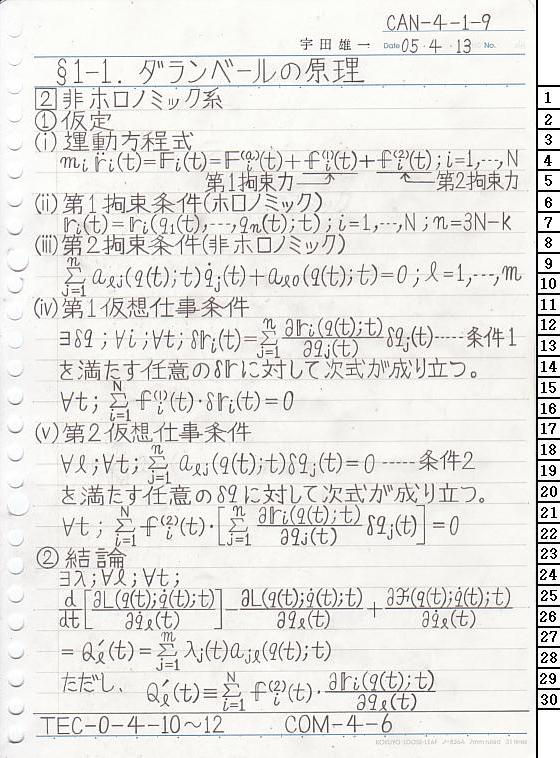 CAN-4-1-9
宇田雄一 Date 05・4・13 No.
§1-1. ダランベールの原理
2 非ホロノミック系
① 仮定
(i) 運動方程式
m_i r̈_i(t)=F_i(t)=F^{(a)}_i(t)+f^{(1)}_i(t)+f^{(2)}_i(t);i=1,…,N
第1拘束力 第2拘束力
(ii) 第1拘束条件(ホロノミック)
r_i(t)=r_i(q_1(t),…,q_n(t);t);i=1,…,N;n=3N-k
(iii) 第2拘束条件(非ホロノミック)
∑_{j=1}^{n} a_{ℓj}(q(t);t)q̇_j(t)+a_{ℓ0}(q(t);t)=0;ℓ=1,…,m
(iv) 第1仮想仕事条件
∃δq;∀i;∀t;δr_i(t)=∑_{j=1}^{n} ∂r_i(q(t);t)/∂q_j(t) δq_j(t)-----条件1
を満たす任意のδrに対して次式が成り立つ。
∀t;∑_{i=1}^{N} f^{(1)}_i(t)・δr_i(t)=0
(v) 第2仮想仕事条件
∀ℓ;∀t;∑_{j=1}^{n} a_{ℓj}(q(t);t)δq_j(t)=0-----条件2
を満たす任意のδqに対して次式が成り立つ。
∀t;∑_{i=1}^{N} f^{(2)}_i(t)・[∑_{j=1}^{n} ∂r_i(q(t);t)/∂q_j(t) δq_j(t)]=0
② 結論
∃λ;∀ℓ;∀t;
d/dt[∂L(q(t);q̇(t);t)/∂q̇_ℓ(t)]-∂L(q(t);q̇(t);t)/∂q_ℓ(t)+∂ℱ(q(t);q̇(t);t)/∂q̇_ℓ(t)
=Q'_ℓ(t)=∑_{j=1}^{m} λ_j(t)a_{jℓ}(q(t);t)
ただし、Q'_ℓ(t)≡∑_{i=1}^{N} f^{(2)}_i(t)・∂r_i(q(t);t)/∂q_ℓ(t)
TEC-0-4-10~12 COM-4-6
KOKUYO LOOSE-LEAF ノ-836A 7mm ruled 31 lines
1
2
3
4
5
6
7
8
9
10
11
12
13
14
15
16
17
18
19
20
21
22
23
24
25
26
27
28
29
30